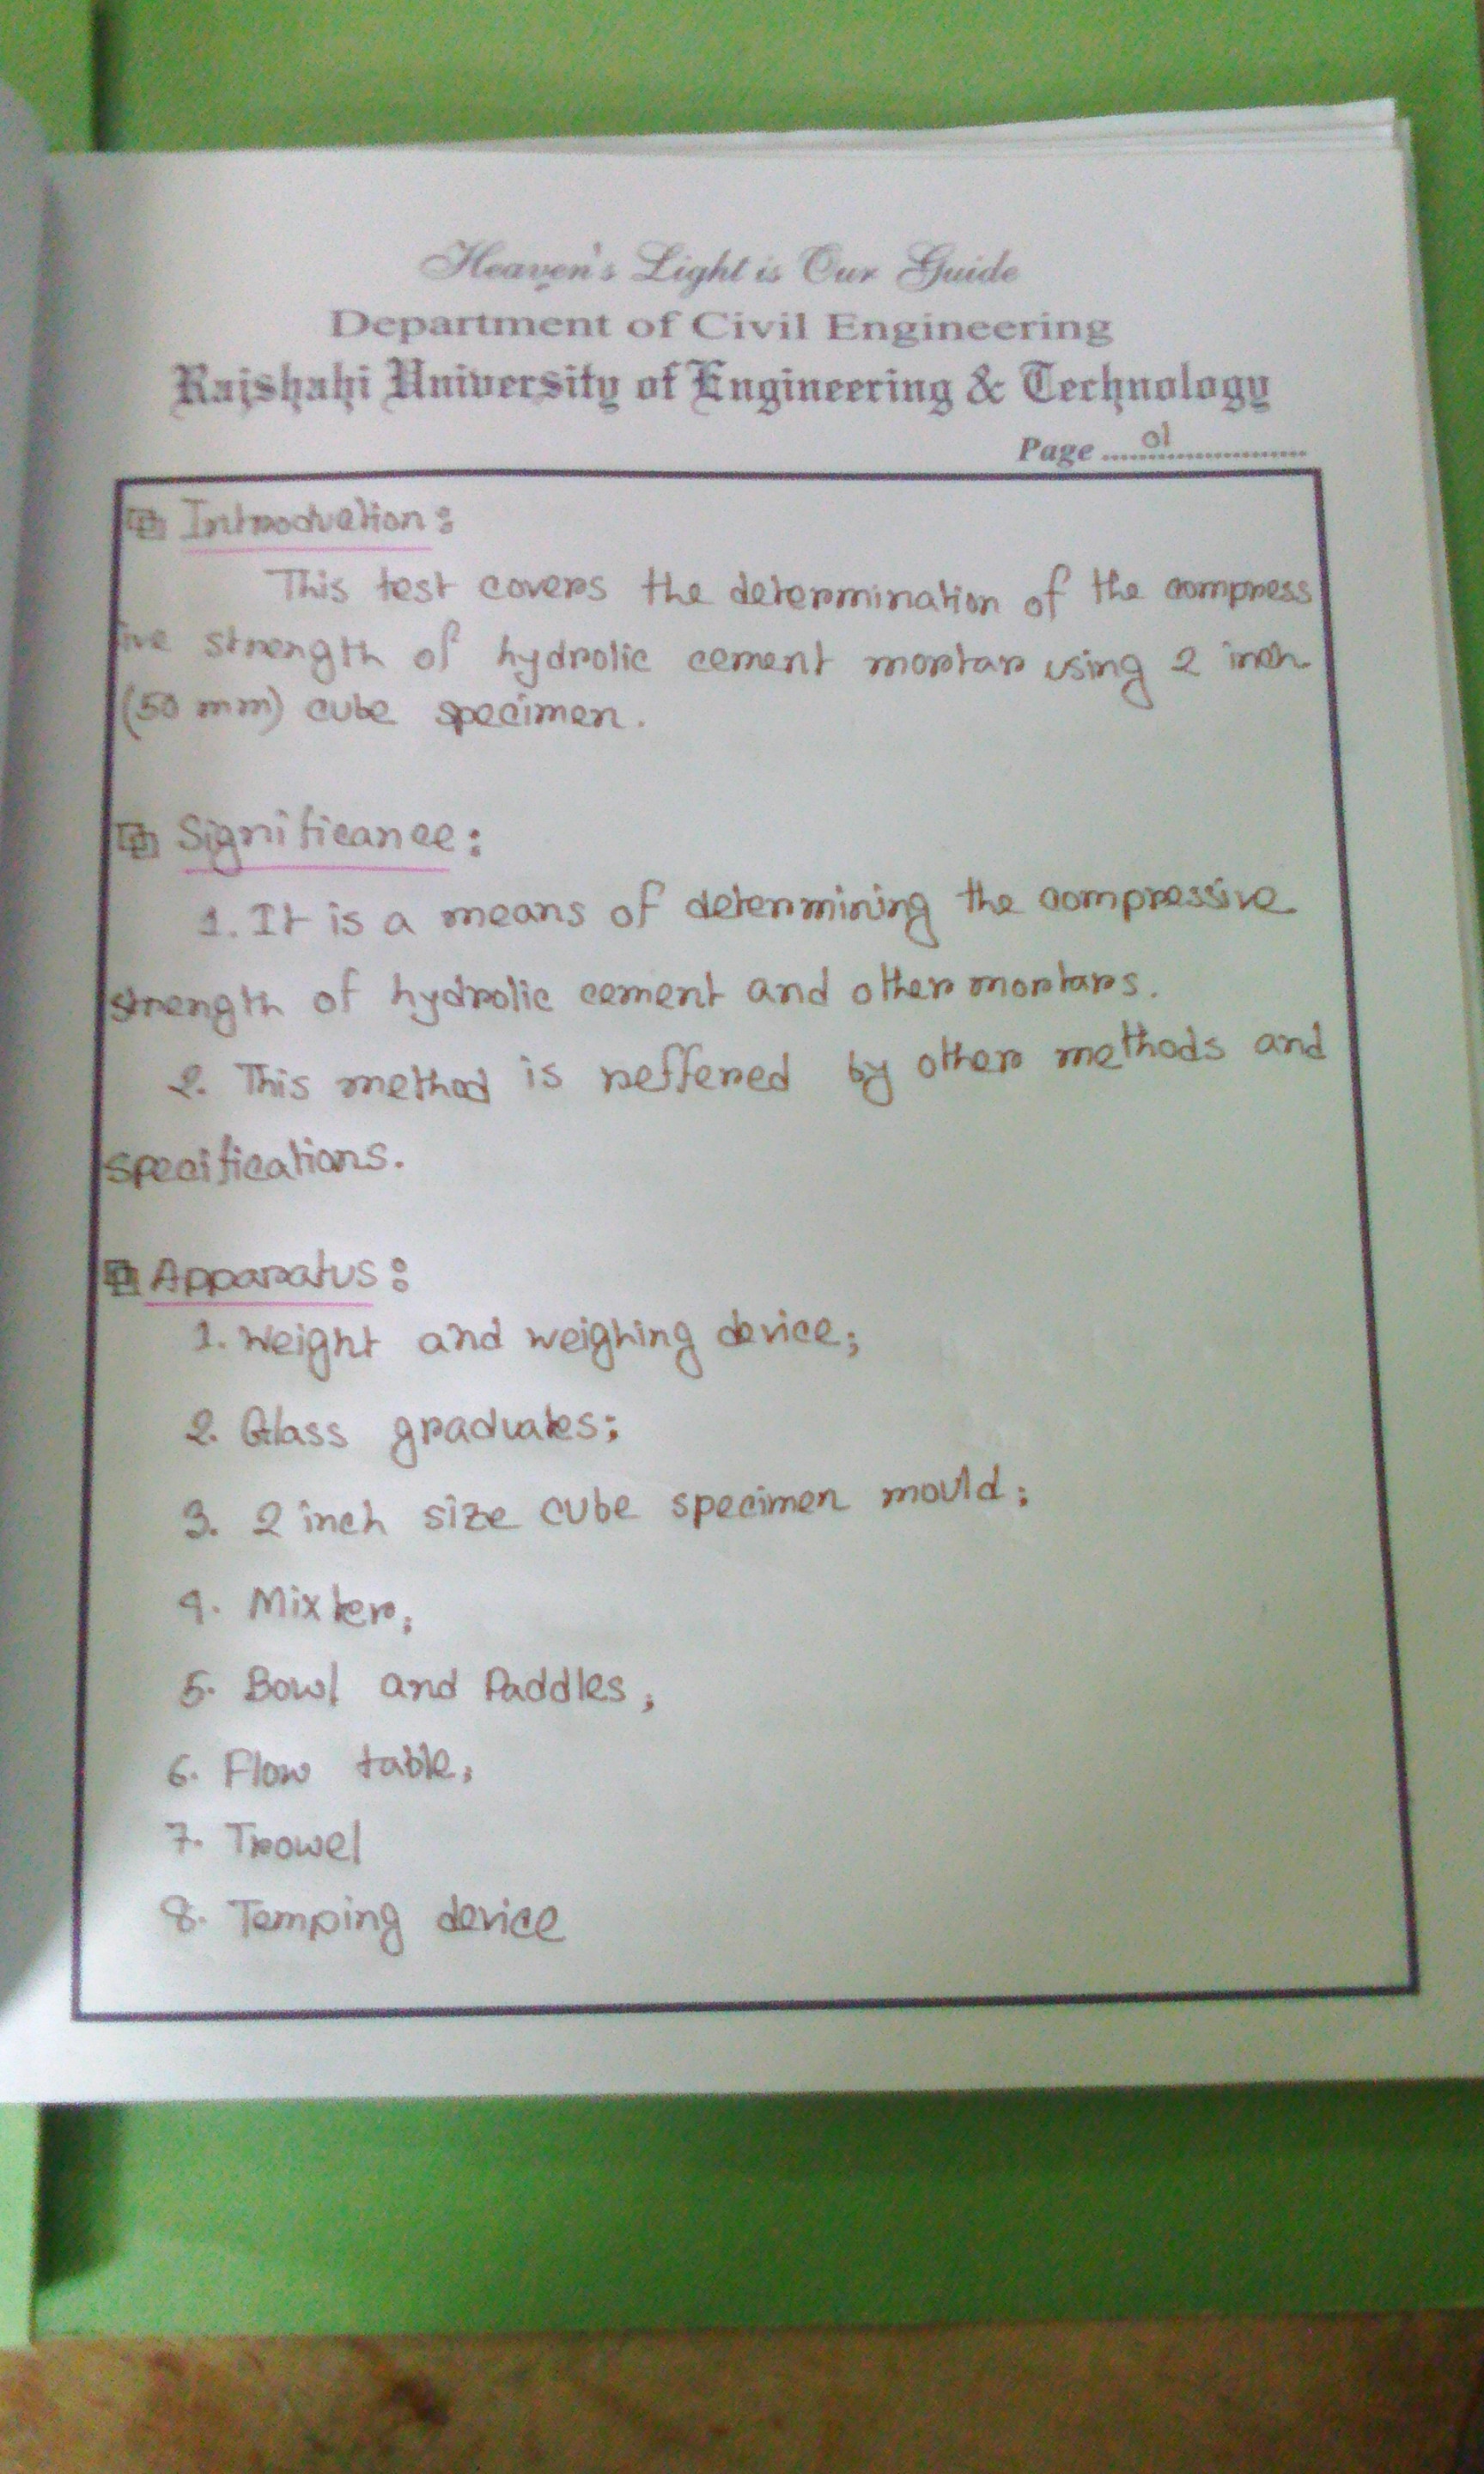 Heaven's Light is Our Guide
Department of Civil Engineering
Rajshahi University of Engineering & Technology
Page ....01....................
Introduction:
This test covers the determination of the compress
ive strength of hydrolic cement mortar using 2 inch
(50 mm) cube specimen.
Significance:
1. It is a means of determining the compressive
strength of hydrolic cement and other mortars.
2. This method is reffered by other methods and
specifications.
Apparatus:
1. Weight and weighing device;
2. Glass graduates;
3. 2 inch size cube specimen mould;
4. Mixter;
5. Bowl and Paddles;
6. Flow table;
7. Trowel
8. Temping device